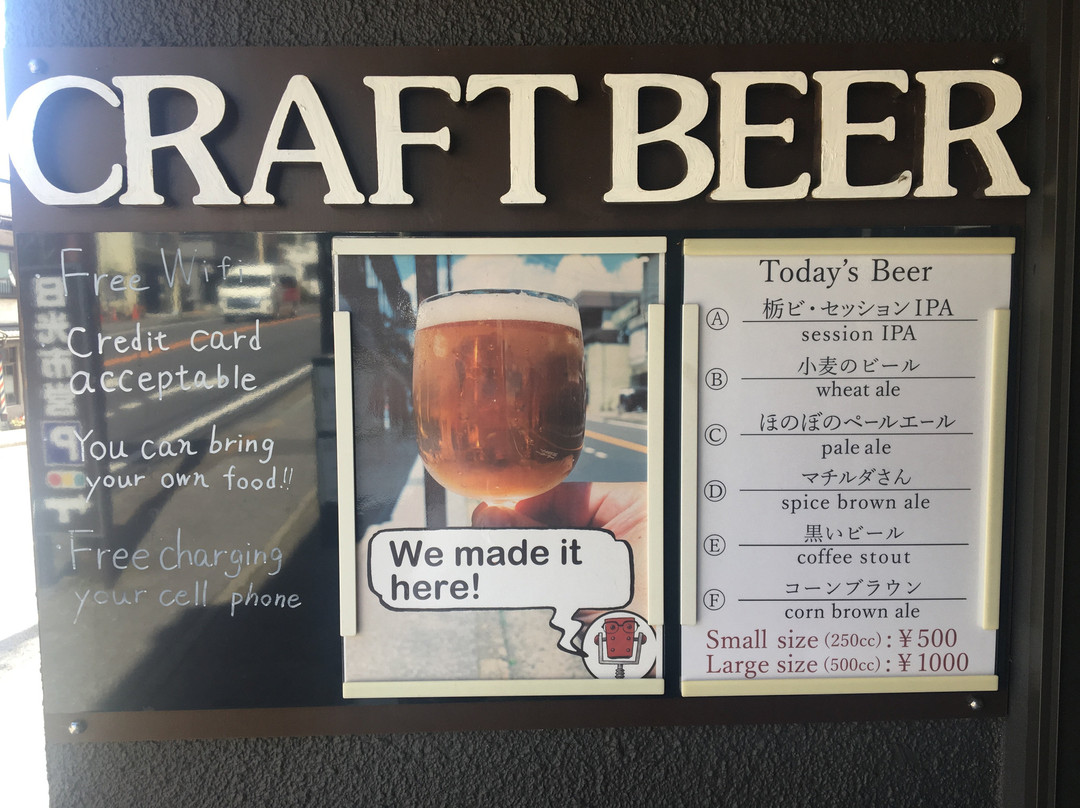 CRAFT BEER
Free Wifi
Credit card
acceptable
You can bring
your own food!!
Free charging
your cell phone
We made it
here!
Today's Beer
Ⓐ 栃ビ・セッションIPA
session IPA
Ⓑ 小麦のビール
wheat ale
Ⓒ ほのぼのペールエール
pale ale
Ⓓ マチルダさん
spice brown ale
Ⓔ 黒いビール
coffee stout
Ⓕ コーンブラウン
corn brown ale
Small size (250cc) : ¥500
Large size (500cc) : ¥1000